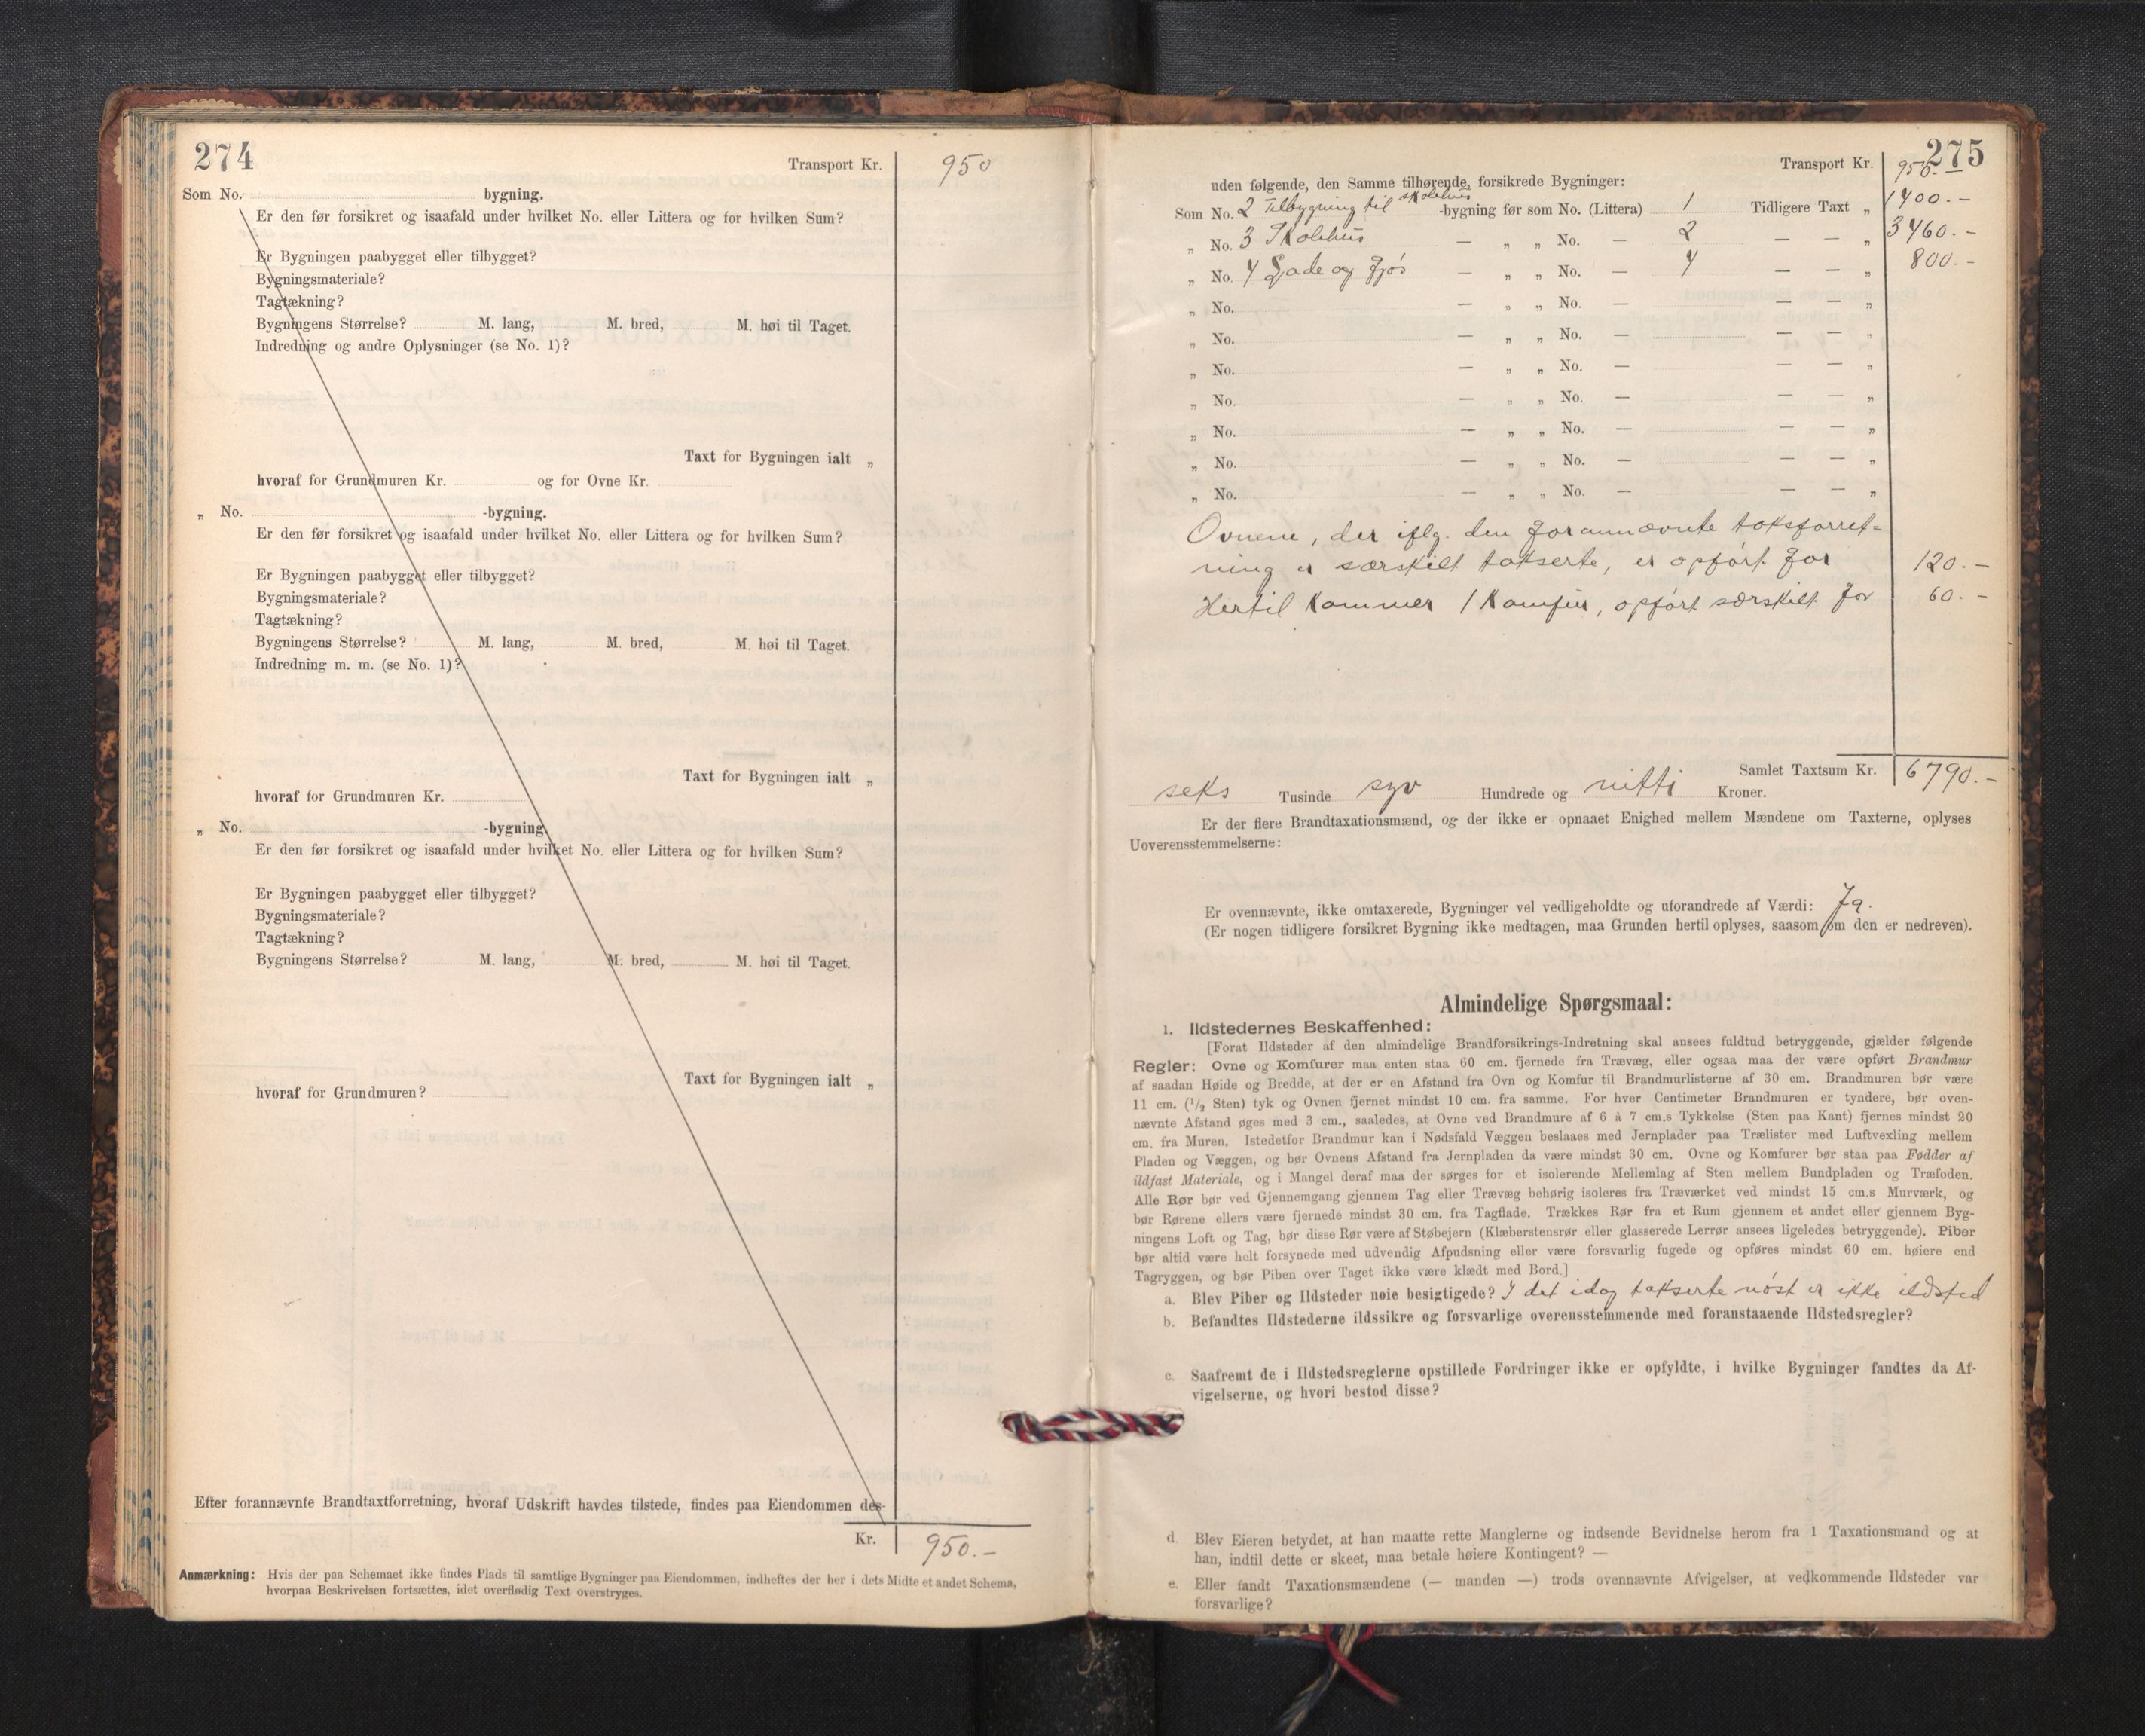 274
Transport Kr. 950
Som No. bygning.
Er den før forsikret og isaafald under hvilket No. eller Littera og for hvilken Sum?
Er Bygningen paabygget eller tilbygget?
Bygningsmateriale?
Tagtækning?
Bygningens Størrelse? M. lang, M. bred, M. høi til Taget.
Indredning og andre Oplysninger (se No. 1)?
Taxt for Bygningen ialt „
hvoraf for Grundmuren Kr. og for Ovne Kr.
„ No. -bygning.
Er den før forsikret og isaafald under hvilket No. eller Littera og for hvilken Sum?
Er Bygningen paabygget eller tilbygget?
Bygningsmateriale?
Tagtækning?
Bygningens Størrelse? M. lang, M. bred, M. høi til Taget.
Indredning m. m. (se No. 1)?
Taxt for Bygningen ialt „
hvoraf for Grundmuren Kr.
„ No. -bygning
Er den før forsikret og isaafald under hvilket No. eller Littera og for hvilken Sum?
Er Bygningen paabygget eller tilbygget?
Bygningsmateriale?
Tagtækning?
Bygningens Størrelse? M. lang, M. bred, M. høi til Taget.
Taxt for Bygningen ialt „
hvoraf for Grundmuren?
Efter forannævnte Brandtaxtforretning, hvoraf Udskrift havdes tilstede, findes paa Eiendommen des-
Kr. 950.-
Anmærkning: Hvis der paa Schemaet ikke findes Plads til samtlige Bygninger paa Eiendommen, indheftes der her i dets Midte et andet Schema,
hvorpaa Beskrivelsen fortsættes, idet overflødig Text overstryges.
275
Transport Kr. 950.-
uden følgende, den Samme tilhørende, forsikrede Bygninger:
Som No. 2 Tilbygning til skolehus -bygning før som No. (Littera) 1 Tidligere Taxt „ 1400.-
„ No. 3 Skolehus — „ „ No. — 2 — — „ 3460.-
„ No. 4 Lade og Fjøs — „ „ No. — 4 — — „ 800.-
„ No. — „ „ No. — — — „
„ No. — „ „ No. — — — „
„ No. — „ „ No. — — — „
„ No. — „ „ No. — — — „
„ No. — „ „ No. — — — „
„ No. — „ „ No. — — — „
„ No. — „ „ No. — — — „
Ovnene, der iflg. den forannævnte taksforret-
ning er særskilt takserte, er opført for 120.-
Hertil kommer 1 Komfur, opført særskilt for 60.-
Samlet Taxtsum Kr. 6790.-
seks Tusinde syv Hundrede og nitti Kroner.
Er der flere Brandtaxationsmænd, og der ikke er opnaaet Enighed mellem Mændene om Taxterne, oplyses
Uoverensstemmelserne:
Er ovennævnte, ikke omtaxerede, Bygninger vel vedligeholdte og uforandrede af Værdi: Ja.
(Er nogen tidligere forsikret Bygning ikke medtagen, maa Grunden hertil oplyses, saasom om den er nedreven).
Almindelige Spørgsmaal:
1. Ildstedernes Beskaffenhed:
[Forat Ildsteder af den almindelige Brandforsikrings-Indretning skal ansees fuldtud betryggende, gjælder følgende
Regler: Ovne og Komfurer maa enten staa 60 cm. fjernede fra Trævæg, eller ogsaa maa der være opført Brandmur
af saadan Høide og Bredde, at der er en Afstand fra Ovn og Komfur til Brandmurlisterne af 30 cm. Brandmuren bør være
11 cm. (1/2 Sten) tyk og Ovnen fjernet mindst 10 cm. fra samme. For hver Centimeter Brandmuren er tyndere, bør oven-
nævnte Afstand øges med 3 cm., saaledes, at Ovne ved Brandmure af 6 à 7 cm.s Tykkelse (Sten paa Kant) fjernes mindst 20
cm. fra Muren. Istedetfor Brandmur kan i Nødsfald Væggen beslaaes med Jernplader paa Trælister med Luftvexling mellem
Pladen og Væggen, og bør Ovnens Afstand fra Jernpladen da være mindst 30 cm. Ovne og Komfurer bør staa paa Fødder af
ildfast Materiale, og i Mangel deraf maa der sørges for et isolerende Mellemlag af Sten mellem Bundpladen og Træfoden.
Alle Rør bør ved Gjennemgang gjennem Tag eller Trævæg behørig isoleres fra Træværket ved mindst 15 cm.s Murværk, og
bør Rørene ellers være fjernede mindst 30 cm. fra Tagflade. Trækkes Rør fra et Rum gjennem et andet eller gjennem Byg-
ningens Loft og Tag, bør disse Rør være af Støbejern (Klæberstensrør eller glasserede Lerrør ansees ligeledes betryggende). Piber
bør altid være helt forsynede med udvendig Afpudsning eller være forsvarlig fugede og opføres mindst 60 cm. høiere end
Tagryggen, og bør Piben over Taget ikke være klædt med Bord.]
a. Blev Piber og Ildsteder nøie besigtigede? I det idag takserte nøst er ikke ildsted
b. Befandtes Ildstederne ildssikre og forsvarlige overensstemmende med foranstaaende Ildstedsregler?
c. Saafremt de i Ildstedsreglerne opstillede Fordringer ikke er opfyldte, i hvilke Bygninger fandtes da Af-
vigelserne, og hvori bestod disse?
d. Blev Eieren betydet, at han maatte rette Manglerne og indsende Bevidnelse herom fra 1 Taxationsmand og at
han, indtil dette er skeet, maa betale høiere Kontingent? —
e. Eller fandt Taxationsmændene (— manden —) trods ovennævnte Afvigelser, at vedkommende Ildsteder var
forsvarlige?